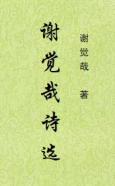 谢觉哉诗选
谢觉哉 著